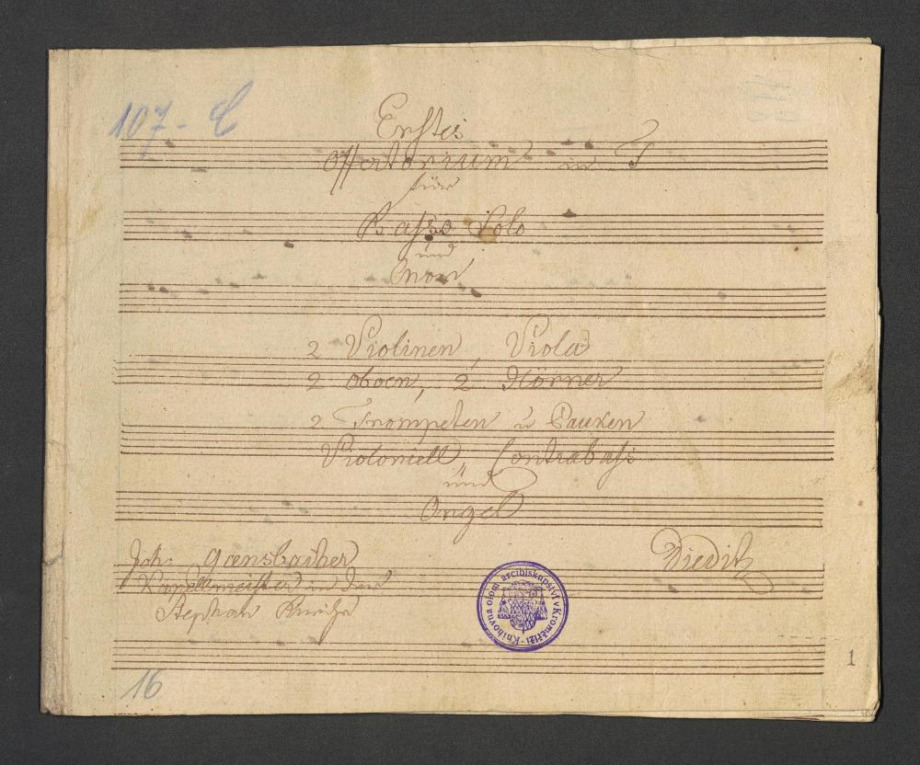 107 - C
Erstes
Offertorium in F
für
Basso Solo
und
Chor
2 Violinen, Viola
2 Oboen, 2 Hörner
2 Trompeten u Pauken
Violoncell Contrabass
und
Orgel
Joh. Gaensbacher
Kapellmeister in der
Stephans Kirche
Dieditz
Knihovna olom. arcibiskupství v Kroměříži
1
16